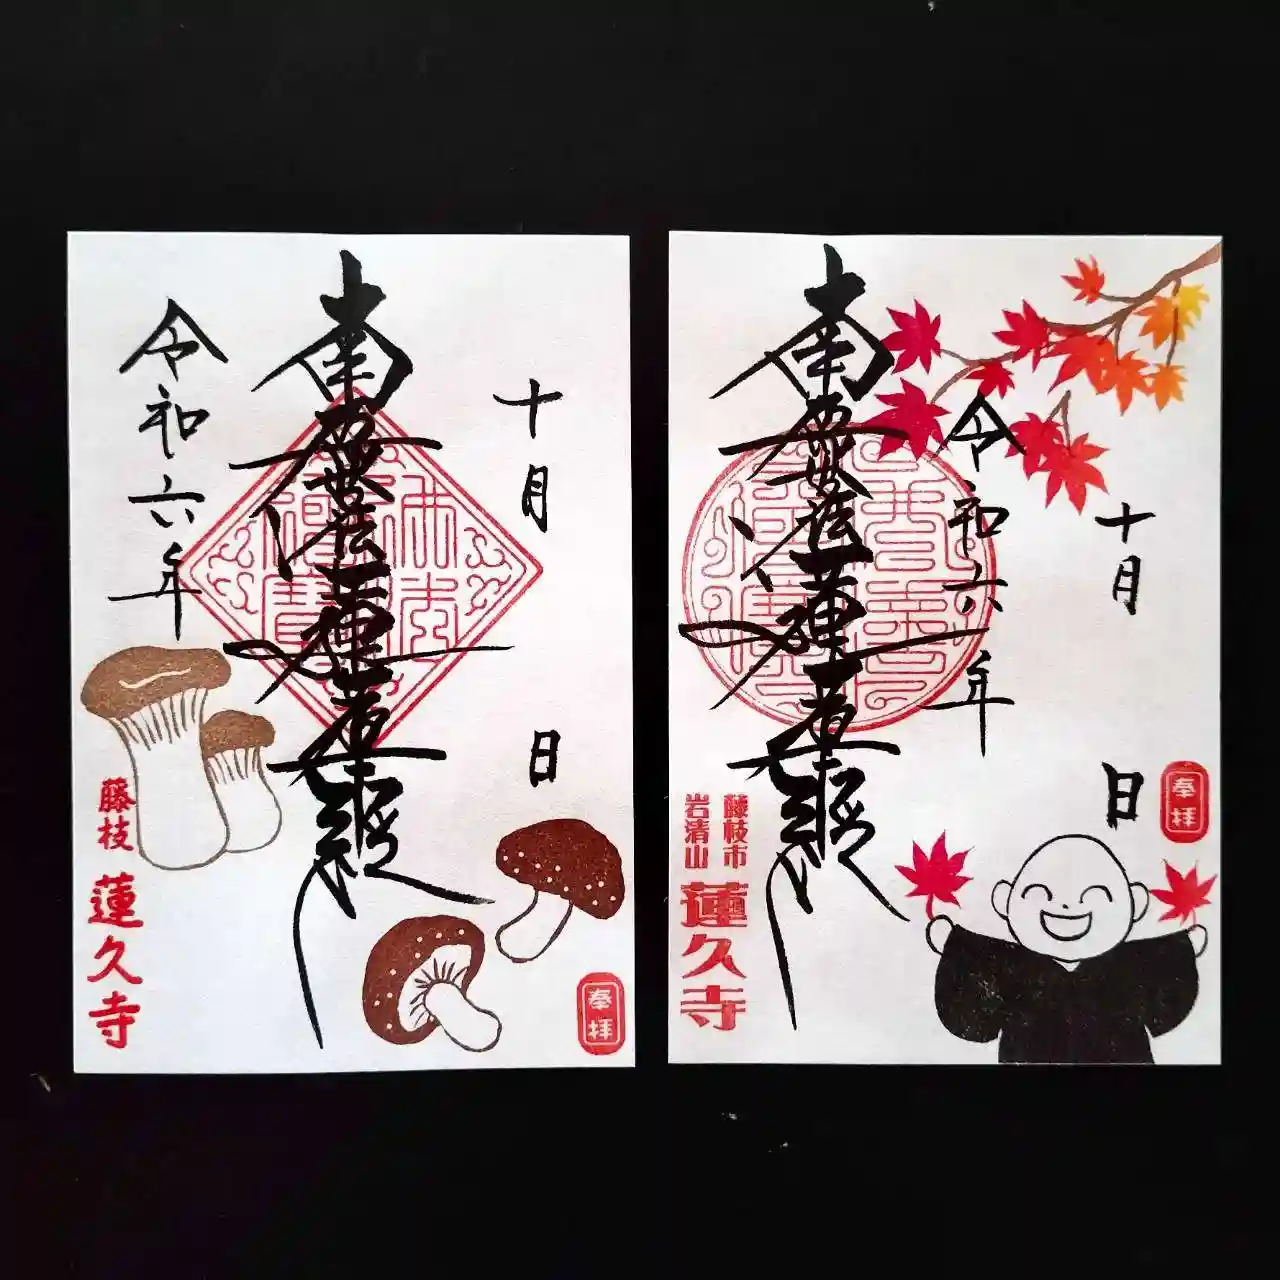 十月
日
奉拝
南無妙法蓮華経
令和六年
藤枝
蓮久寺
十月
日
奉拝
令和六年
南無妙法蓮華経
藤枝市
岩清山
蓮久寺